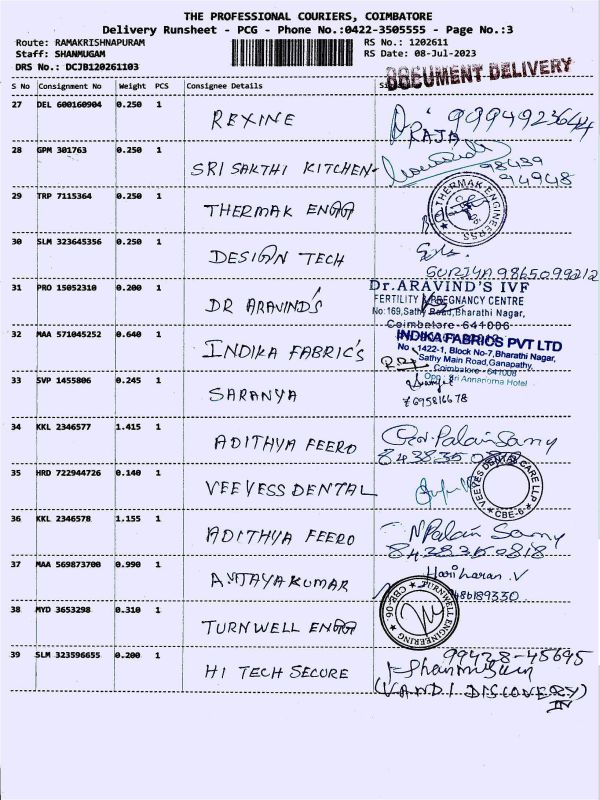 THE PROFESSIONAL COURIERS, COIMBATORE
Delivery Runsheet - PCG - Phone No.:0422-3505555 - Page No.:3
Route: RAMAKRISHNAPURAM RS No.: 1202611
Staff: SHANMUGAM RS Date: 08-Jul-2023
DRS No.: DCJB120261103
DOCUMENT DELIVERY
S No Consignment No Weight PCS Consignee Details
27 DEL 600160904 0.250 1 REXINE 9994923644
RAJA
28 GPM 301763 0.250 1 SRI SAKTHI KITCHEN 98439
94948
29 TRP 7115364 0.250 1 THERMAK ENGG THERMAK ENGINEERSS
30 SLM 323645356 0.250 1 DESIGN TECH
SURIYA 9865099212
31 PRO 15052310 0.200 1 DR ARAVIND'S Dr.ARAVIND'S IVF
FERTILITY & PREGNANCY CENTRE
No:169,Sathy Road,Bharathi Nagar,
Coimbatore-641006
32 MAA 571045252 0.640 1 INDIKA FABRIC'S INDIKA FABRICS PVT LTD
No.1422-1, Block No-7,Bharathi Nagar,
Sathy Main Road,Ganapathy,
Coimbatore - 641006
Opp: Sri Annapoorna Hotel
33 SVP 1455806 0.245 1 SARANYA
34 KKL 2346577 1.415 1 ADITHYA FEERO
8438350818
35 HRD 722944726 0.140 1 VEEYESS DENTAL VEEYES DENTAL CARE LLP CBE-6
36 KKL 2346578 1.155 1 ADITHYA FEERO N Palani Samy
8438350818
37 MAA 569873700 0.990 1 AVIJAYAKUMAR Hariharan.V
38 MYD 3653298 0.310 1 TURNWELL ENGG TURNWELL ENGINEERING CBE-06
39 SLM 323596655 0.200 1 HI TECH SECURE 99428-45695
Shanmugam